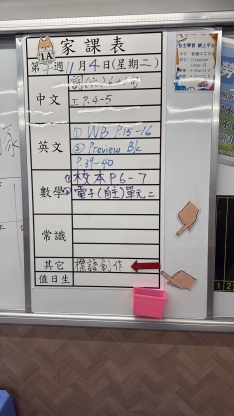 家課表
1A
第十週 11月4日(星期二)
中文
工P.4-5
英文
① WB P.15-16
② Preview Bk
P.39-40
數學
①校本P6-7
②電子(自主)單元二
常識
其它
標語創作
值日生